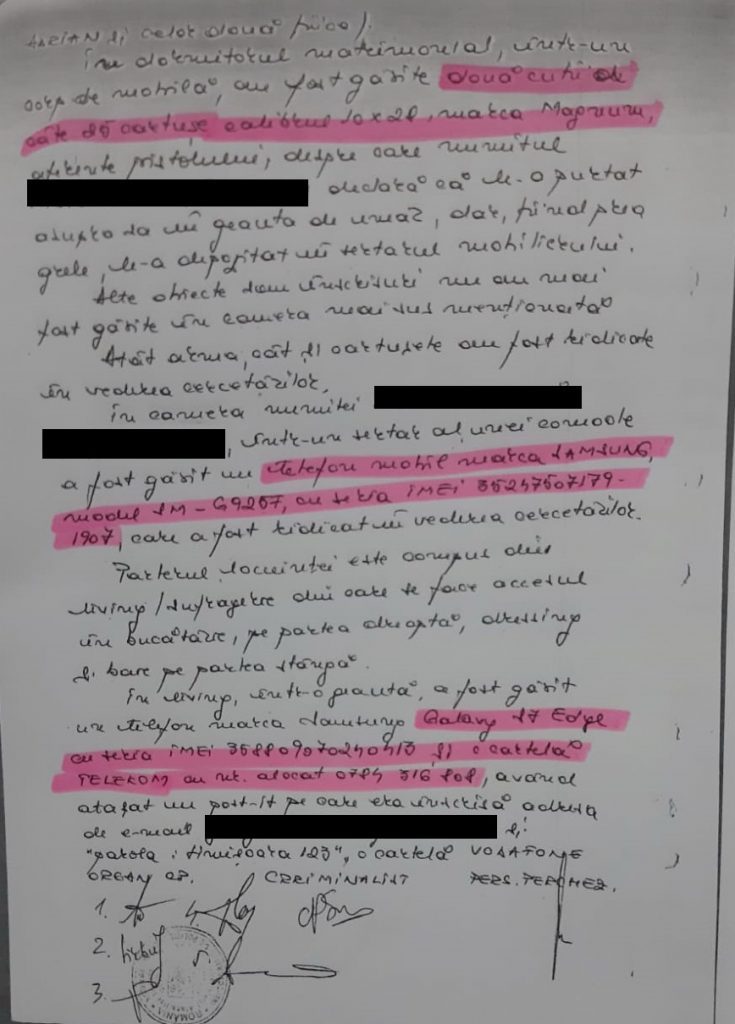 ADRIAN și celor două fiice).
În dormitorul matrimonial, într-un
corp de mobilă, au fost găsite două cutii de
câte 25 cartușe calibrul 10x28, marca Magnum,
aferente pistolului, despre care numitul
declară că le-a purtat
asupra sa în geanta de umăr, dar, fiind prea
grele, le-a depozitat în sertarul mobilierului.
Alte obiecte sau înscrisuri nu au mai
fost găsite în camera mai sus menționată
Atât arma, cât și cartușele au fost ridicate
în vederea cercetărilor.
În camera numitei
, într-un sertar al unei comode
a fost găsit un telefon mobil marca SAMSUNG,
model SM-G9287, cu seria IMEI 35247507179-
1907, care a fost ridicat în vederea cercetărilor.
Parterul locuinței este compus din
living/sufragerie din care se face accesul
în bucătărie, pe partea dreaptă, dressing
și baie pe partea stângă.
În living, într-o geantă, a fost găsit
un telefon marca Samsung Galaxy S7 Edge
cu seria IMEI 358809070240413 și o cartelă
TELEKOM cu nr. alocat 0784 316 808, având
atașat un post-it pe care era înscrisă adresa
de e-mail și
"parola: timisoara 123", o cartelă VODAFONE
ORGAN CP. CRIMINALIST PERS. PERCHEZ.
1. 4.
2.
3.
ROMÂNIA